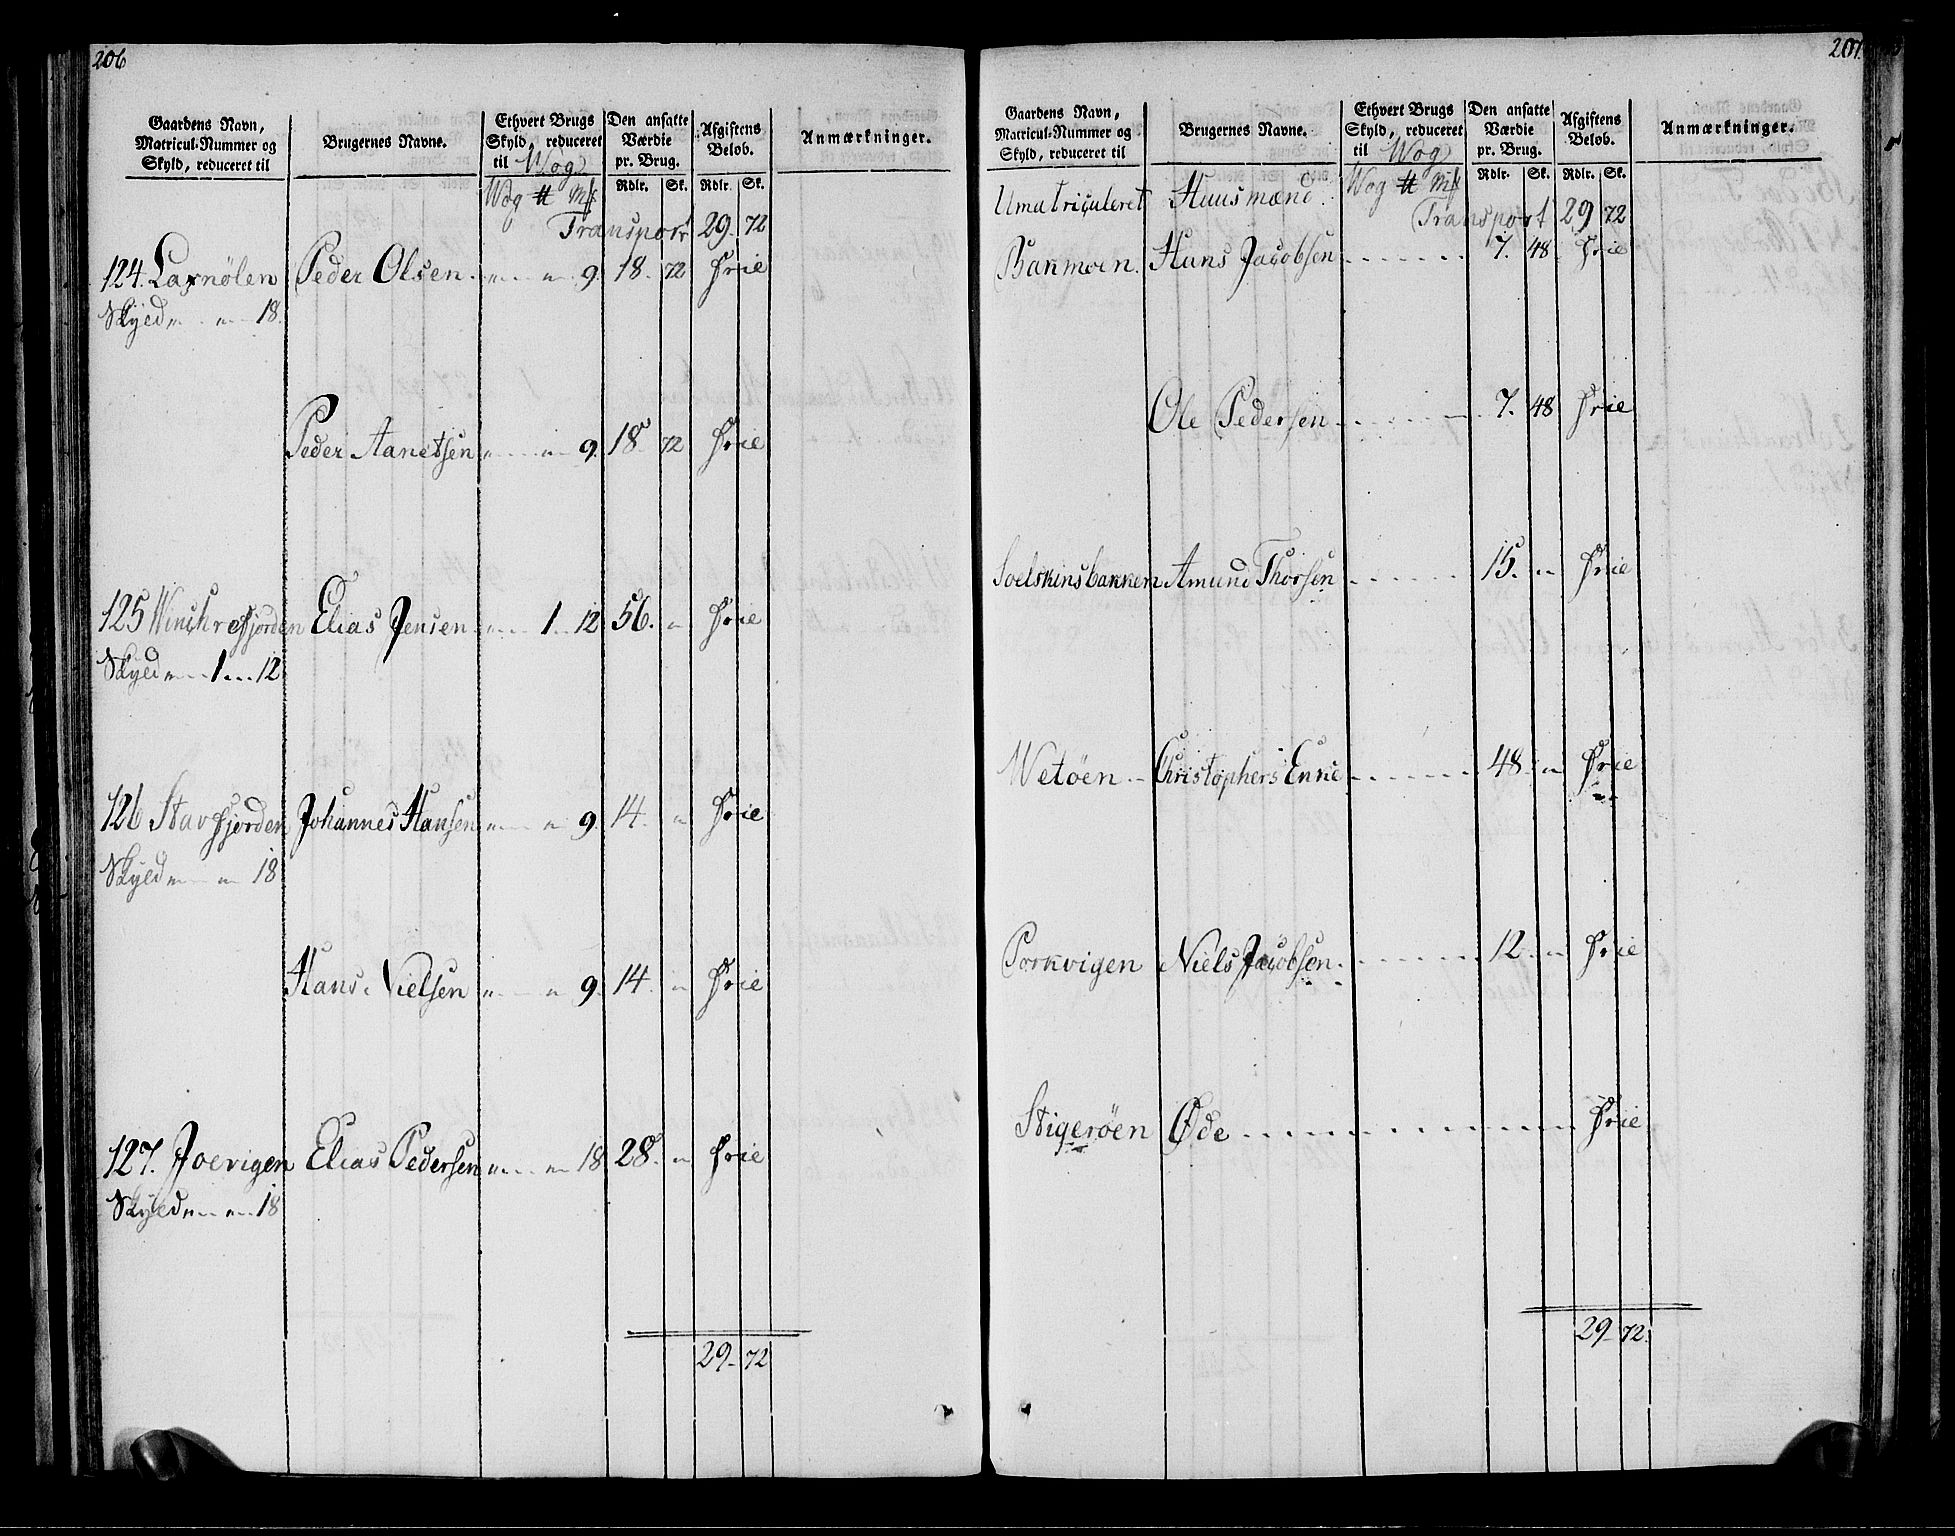 206
Gaardens Navn, Matricul-Nummer og Skyld, reduceret til | Brugernes Navne. | Ethvert Brugs Skyld, reduceret til Wog | Den ansatte Værdie pr. Brug. | Afgiftens Beløb. | Anmærkninger.
Wog ℔ Mk | Rdlr. | Sk. | Rdlr. | Sk.
Transport 29 72
124. Laxnölen Peder Olsen 9. 18. 72 Frie
Skyld 18.
Peder Aanetsen 9. 18. 72 Frie
125 Elias Jensen 1 12 56. Frie
Skyld 1 12
126 Stavfjorden Johannes Hansen 9. 14. Frie
Skyld 18
Hans Nielsen 9. 14. Frie
127. Joevigen Elias Pedersen 18 28. Frie
Skyld 18
29 72
207.
Gaardens Navn, Matricul-Nummer og Skyld, reduceret til | Brugernes Navne. | Ethvert Brugs Skyld, reduceret til Wog | Den ansatte Værdie pr. Brug. | Afgiftens Beløb. | Anmærkninger.
Wog ℔ Mk | Rdlr. | Sk. | Rdlr. | Sk.
Umatriculeret Huusmænd
Transport 29 72
Bakmoen. Hans Jacobsen 7. 48 Frie
Ole Pedersen 7. 48 Frie
Soelskinsbakken Amund Thorsen 15. Frie
Wetöen Christophers Enke 48 Frie
Porkvigen Niels Jacobsen 12 Frie
Stigeröen Øde Frie
29 72